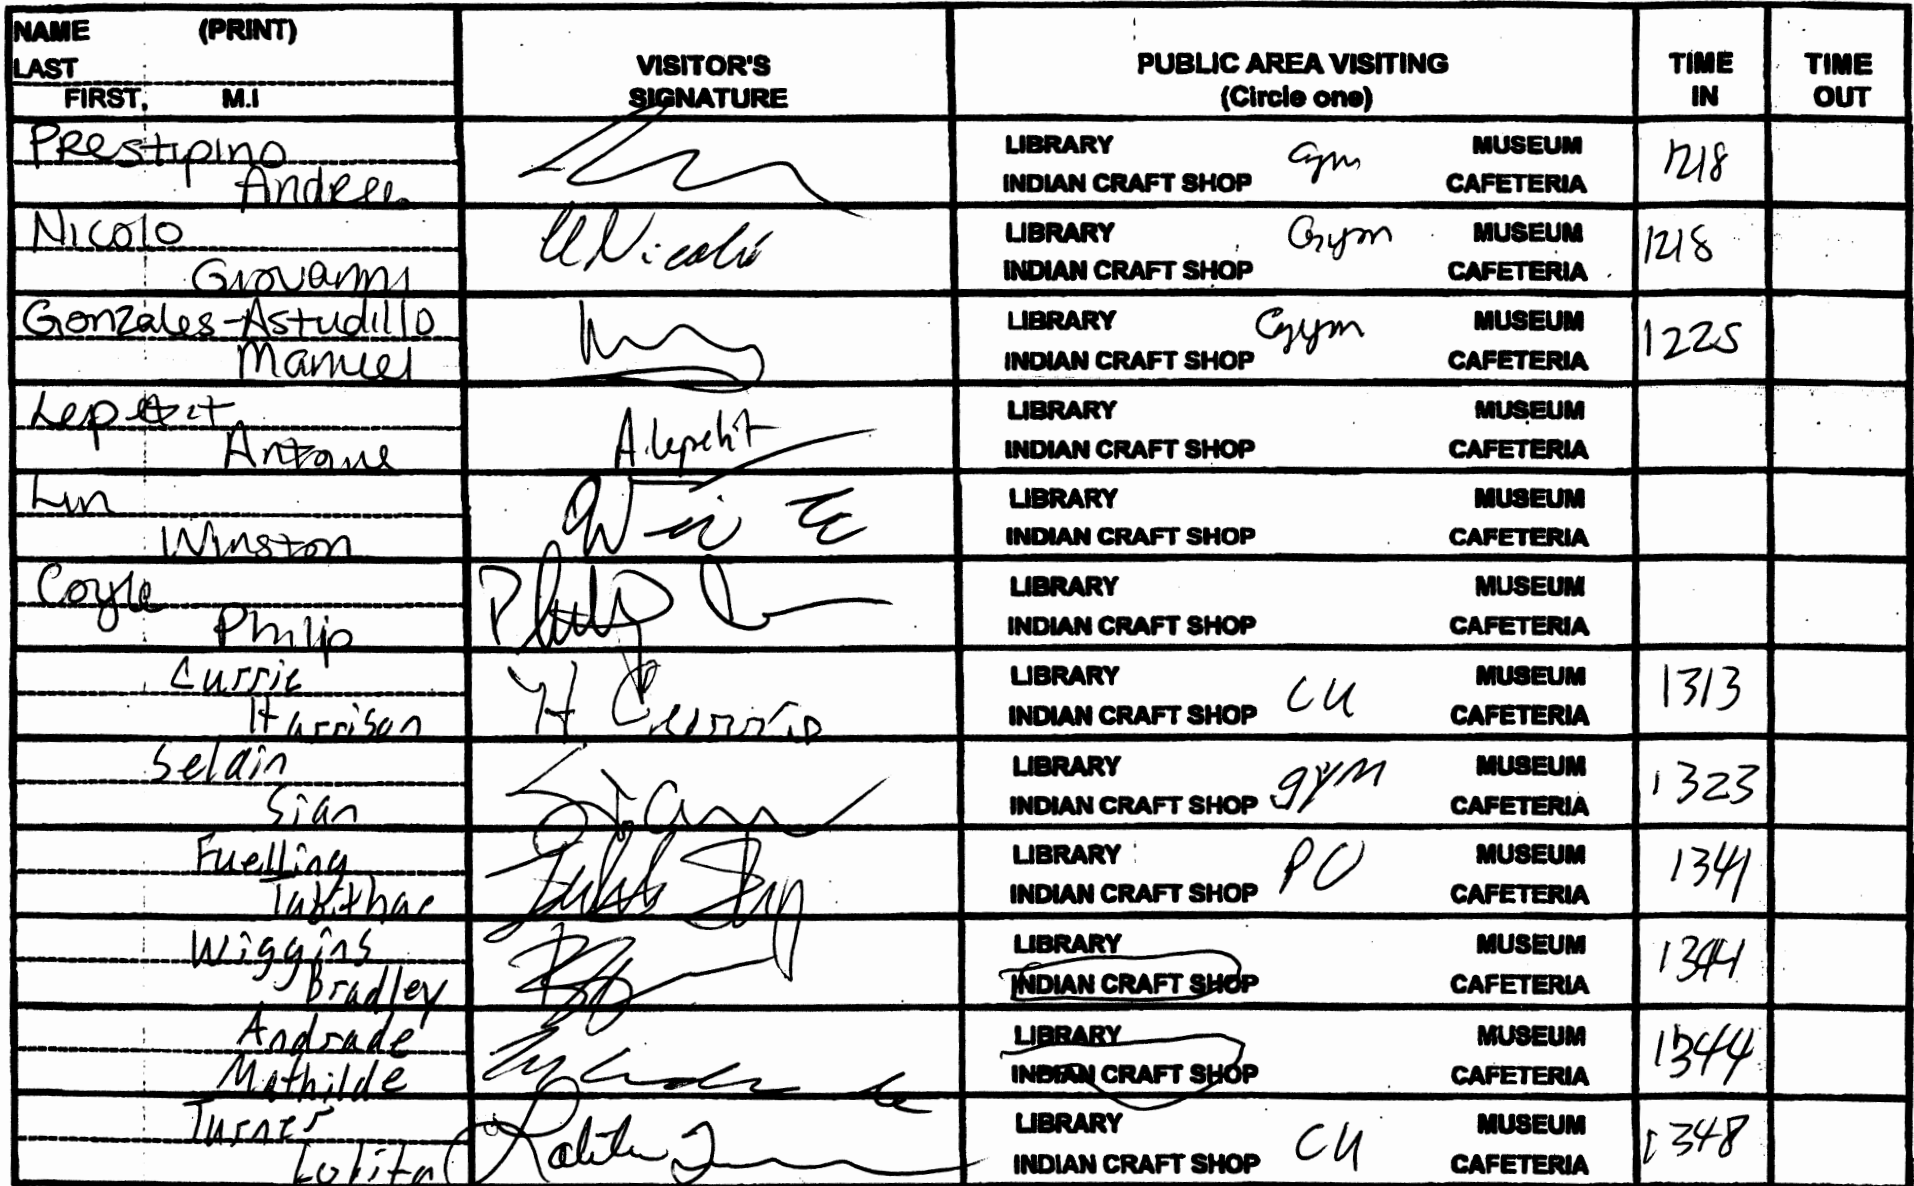 NAME (PRINT)
LAST
FIRST, M.I
VISITOR'S
SIGNATURE
PUBLIC AREA VISITING
(Circle one)
TIME
IN
TIME
OUT
Prestipino
Andrea
LIBRARY Gym MUSEUM
INDIAN CRAFT SHOP CAFETERIA
1218
Nicolo
Giovanni
LIBRARY Gym MUSEUM
INDIAN CRAFT SHOP CAFETERIA
1218
Gonzales-Astudillo
Manuel
LIBRARY Gym MUSEUM
INDIAN CRAFT SHOP CAFETERIA
1225
Lepetit
Antoine
A. Lepetit
LIBRARY MUSEUM
INDIAN CRAFT SHOP CAFETERIA
Lin
Winston
LIBRARY MUSEUM
INDIAN CRAFT SHOP CAFETERIA
Coyle
Philip
Philip
LIBRARY MUSEUM
INDIAN CRAFT SHOP CAFETERIA
Currie
Harrison
H Currie
LIBRARY MUSEUM
INDIAN CRAFT SHOP CU CAFETERIA
1313
Seldin
Sian
Sian
LIBRARY gym MUSEUM
INDIAN CRAFT SHOP CAFETERIA
1323
Fuelling
Tabithar
LIBRARY PO MUSEUM
INDIAN CRAFT SHOP CAFETERIA
1341
Wiggins
Bradley
LIBRARY MUSEUM
INDIAN CRAFT SHOP CAFETERIA
1344
Andrade
Mathilde
LIBRARY MUSEUM
INDIAN CRAFT SHOP CAFETERIA
1344
Turner
Lolita
LIBRARY CU MUSEUM
INDIAN CRAFT SHOP CAFETERIA
1348